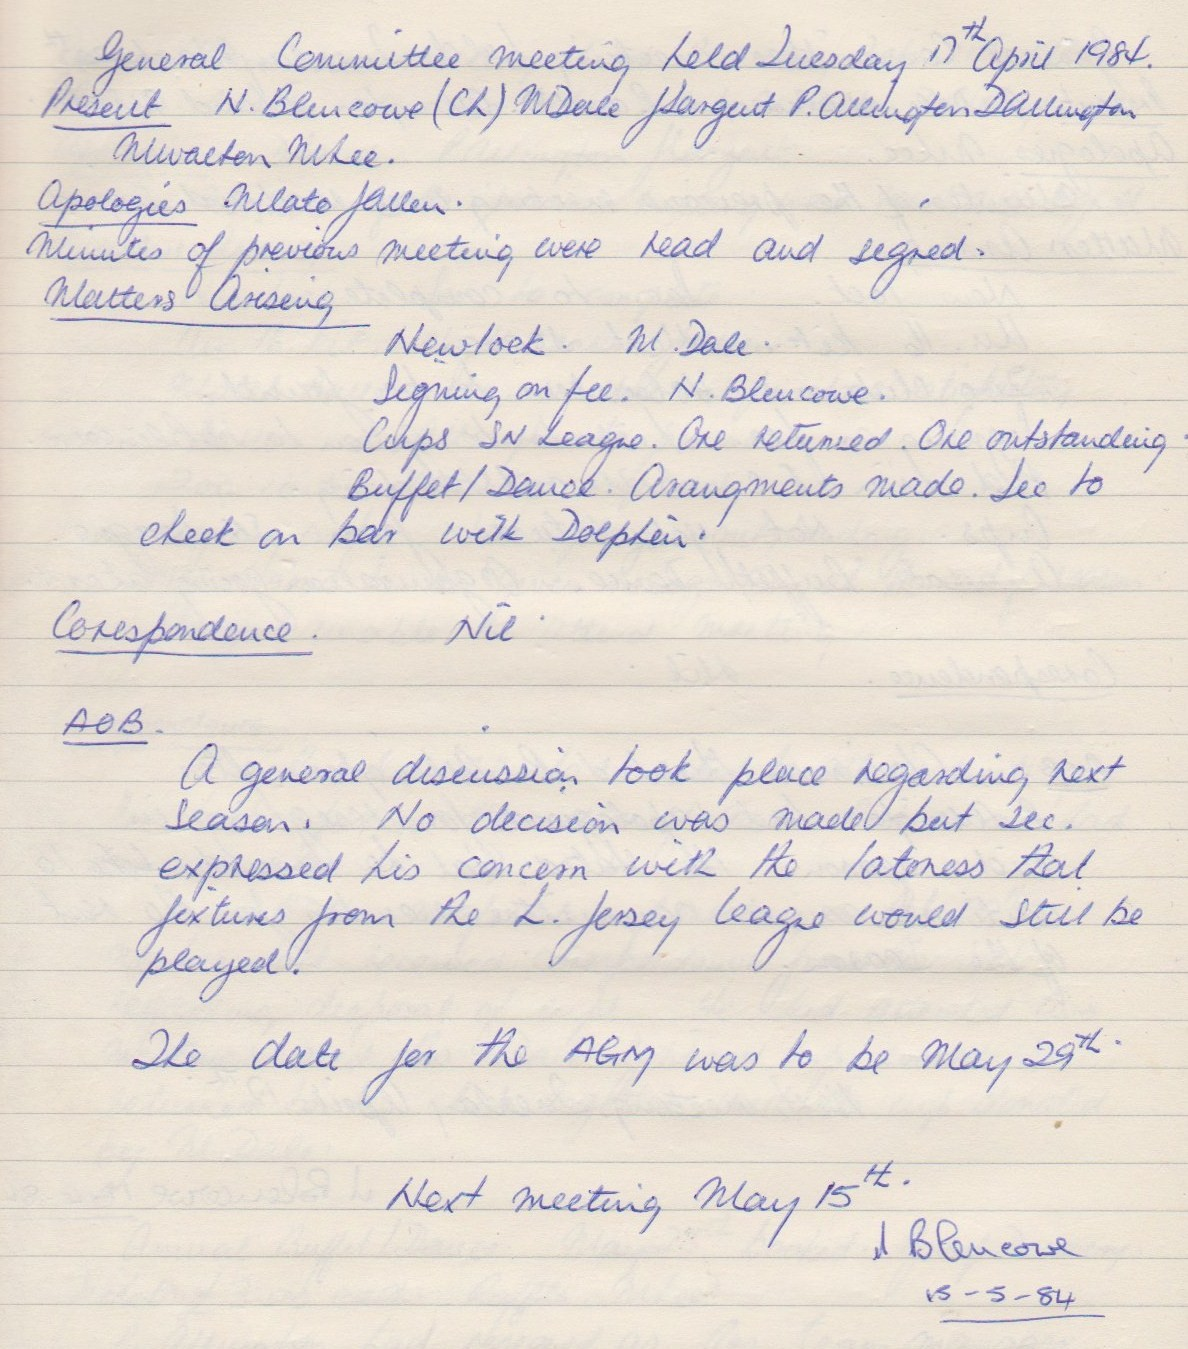 General Committee meeting held Tuesday 17th April 1984.
Present N. Blencowe (Ch) M Dale J Sargent P. Allington D Allington
M Walton M Lee.
Apologies M Lato J Allen.
Minutes of previous meeting were read and signed.
Matters Arising
Newlook. M. Dale.
Signing on fee. N. Blencowe.
Cups SN League. One returned. One outstanding
Buffet/Dance. Arangments made. Sec to
check on bar with Dolphin.
Corespondence. Nil
AOB.
A general discussion took place regarding next
season. No decision was made but sec.
expressed his concern with the lateness that
fixtures from the L. Jersey league would still be
played.
The date for the AGM was to be May 29th.
Next meeting May 15th.
N Blencowe
15-5-84